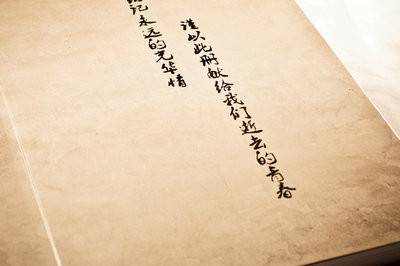 谨以此册献给我们逝去的青春
记永远的光华情